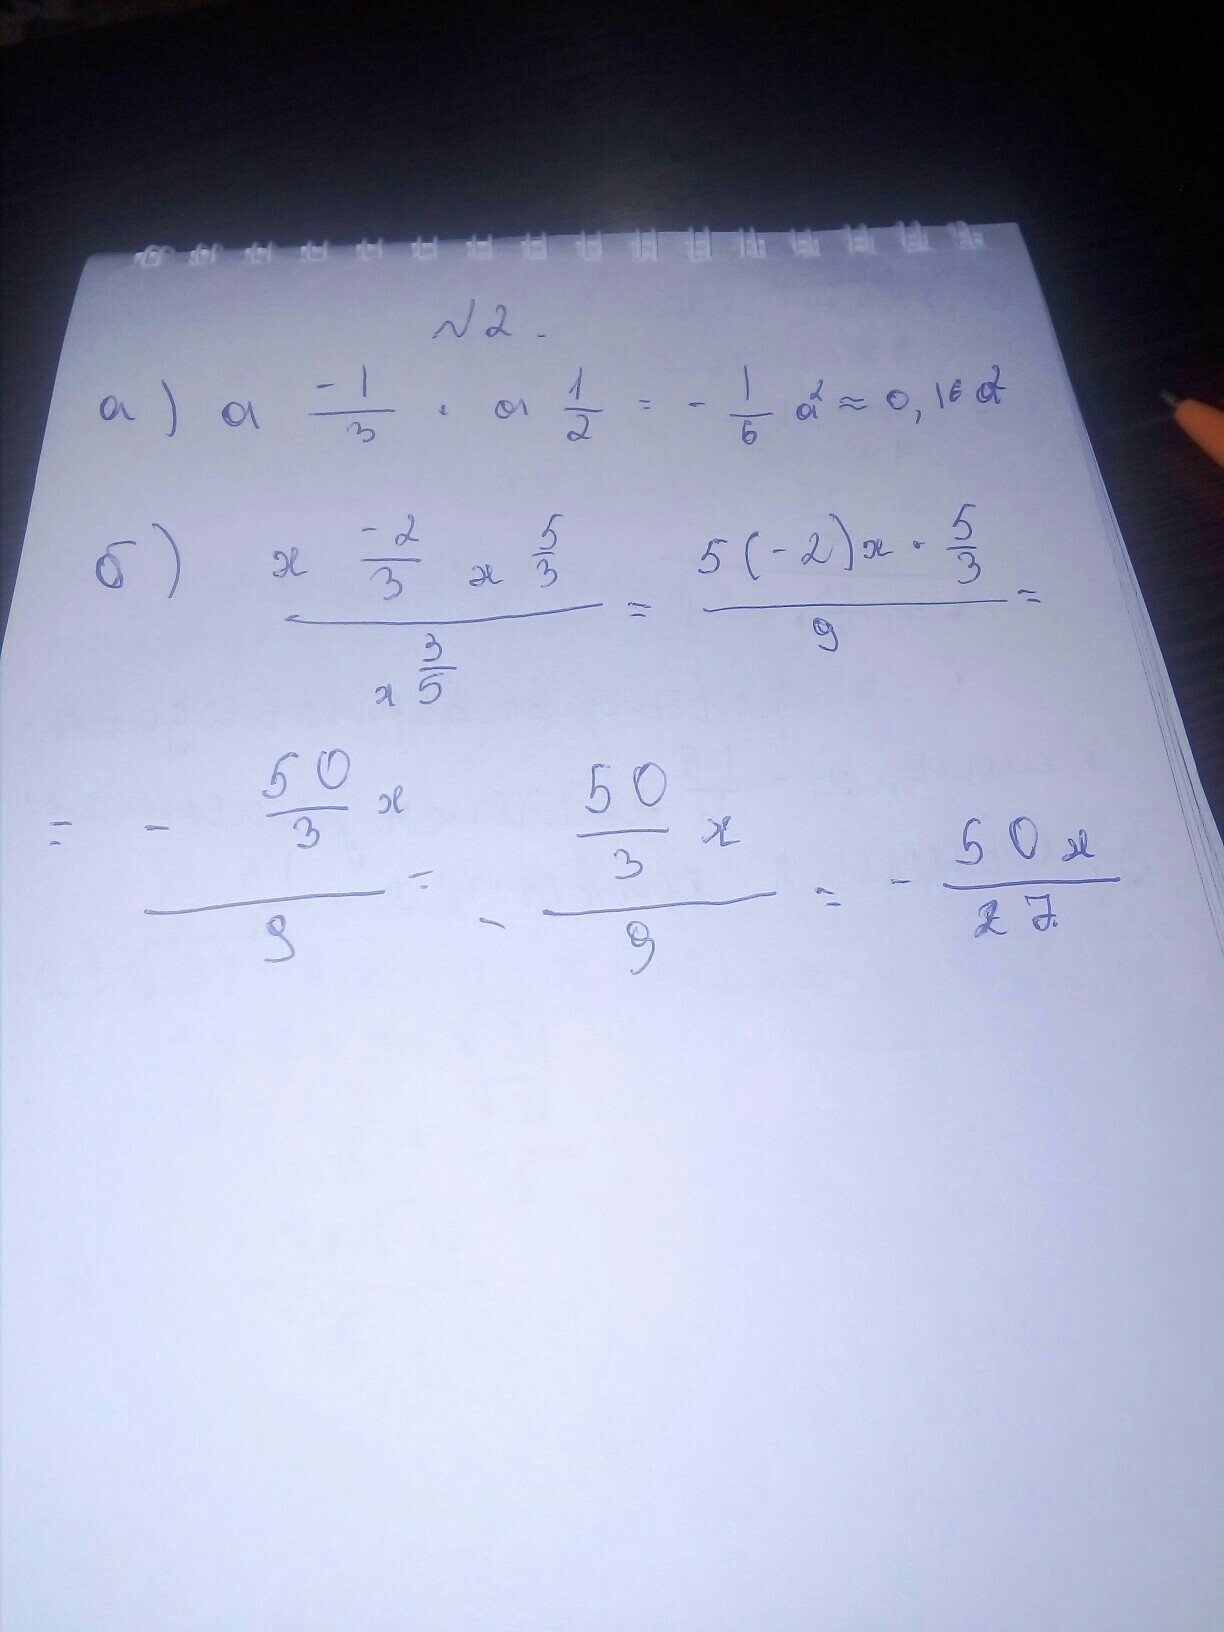 №2.
а) a \frac{-1}{3} · a \frac{1}{2} = - \frac{1}{6} a² ≈ 0,16 a²
б) \frac{x \frac{-2}{3} x \frac{5}{3}}{x \frac{3}{5}} = \frac{5(-2)x · \frac{5}{3}}{9} =
= - \frac{\frac{50}{3} x}{9} = - \frac{\frac{50}{3} x}{9} = - \frac{50x}{27}